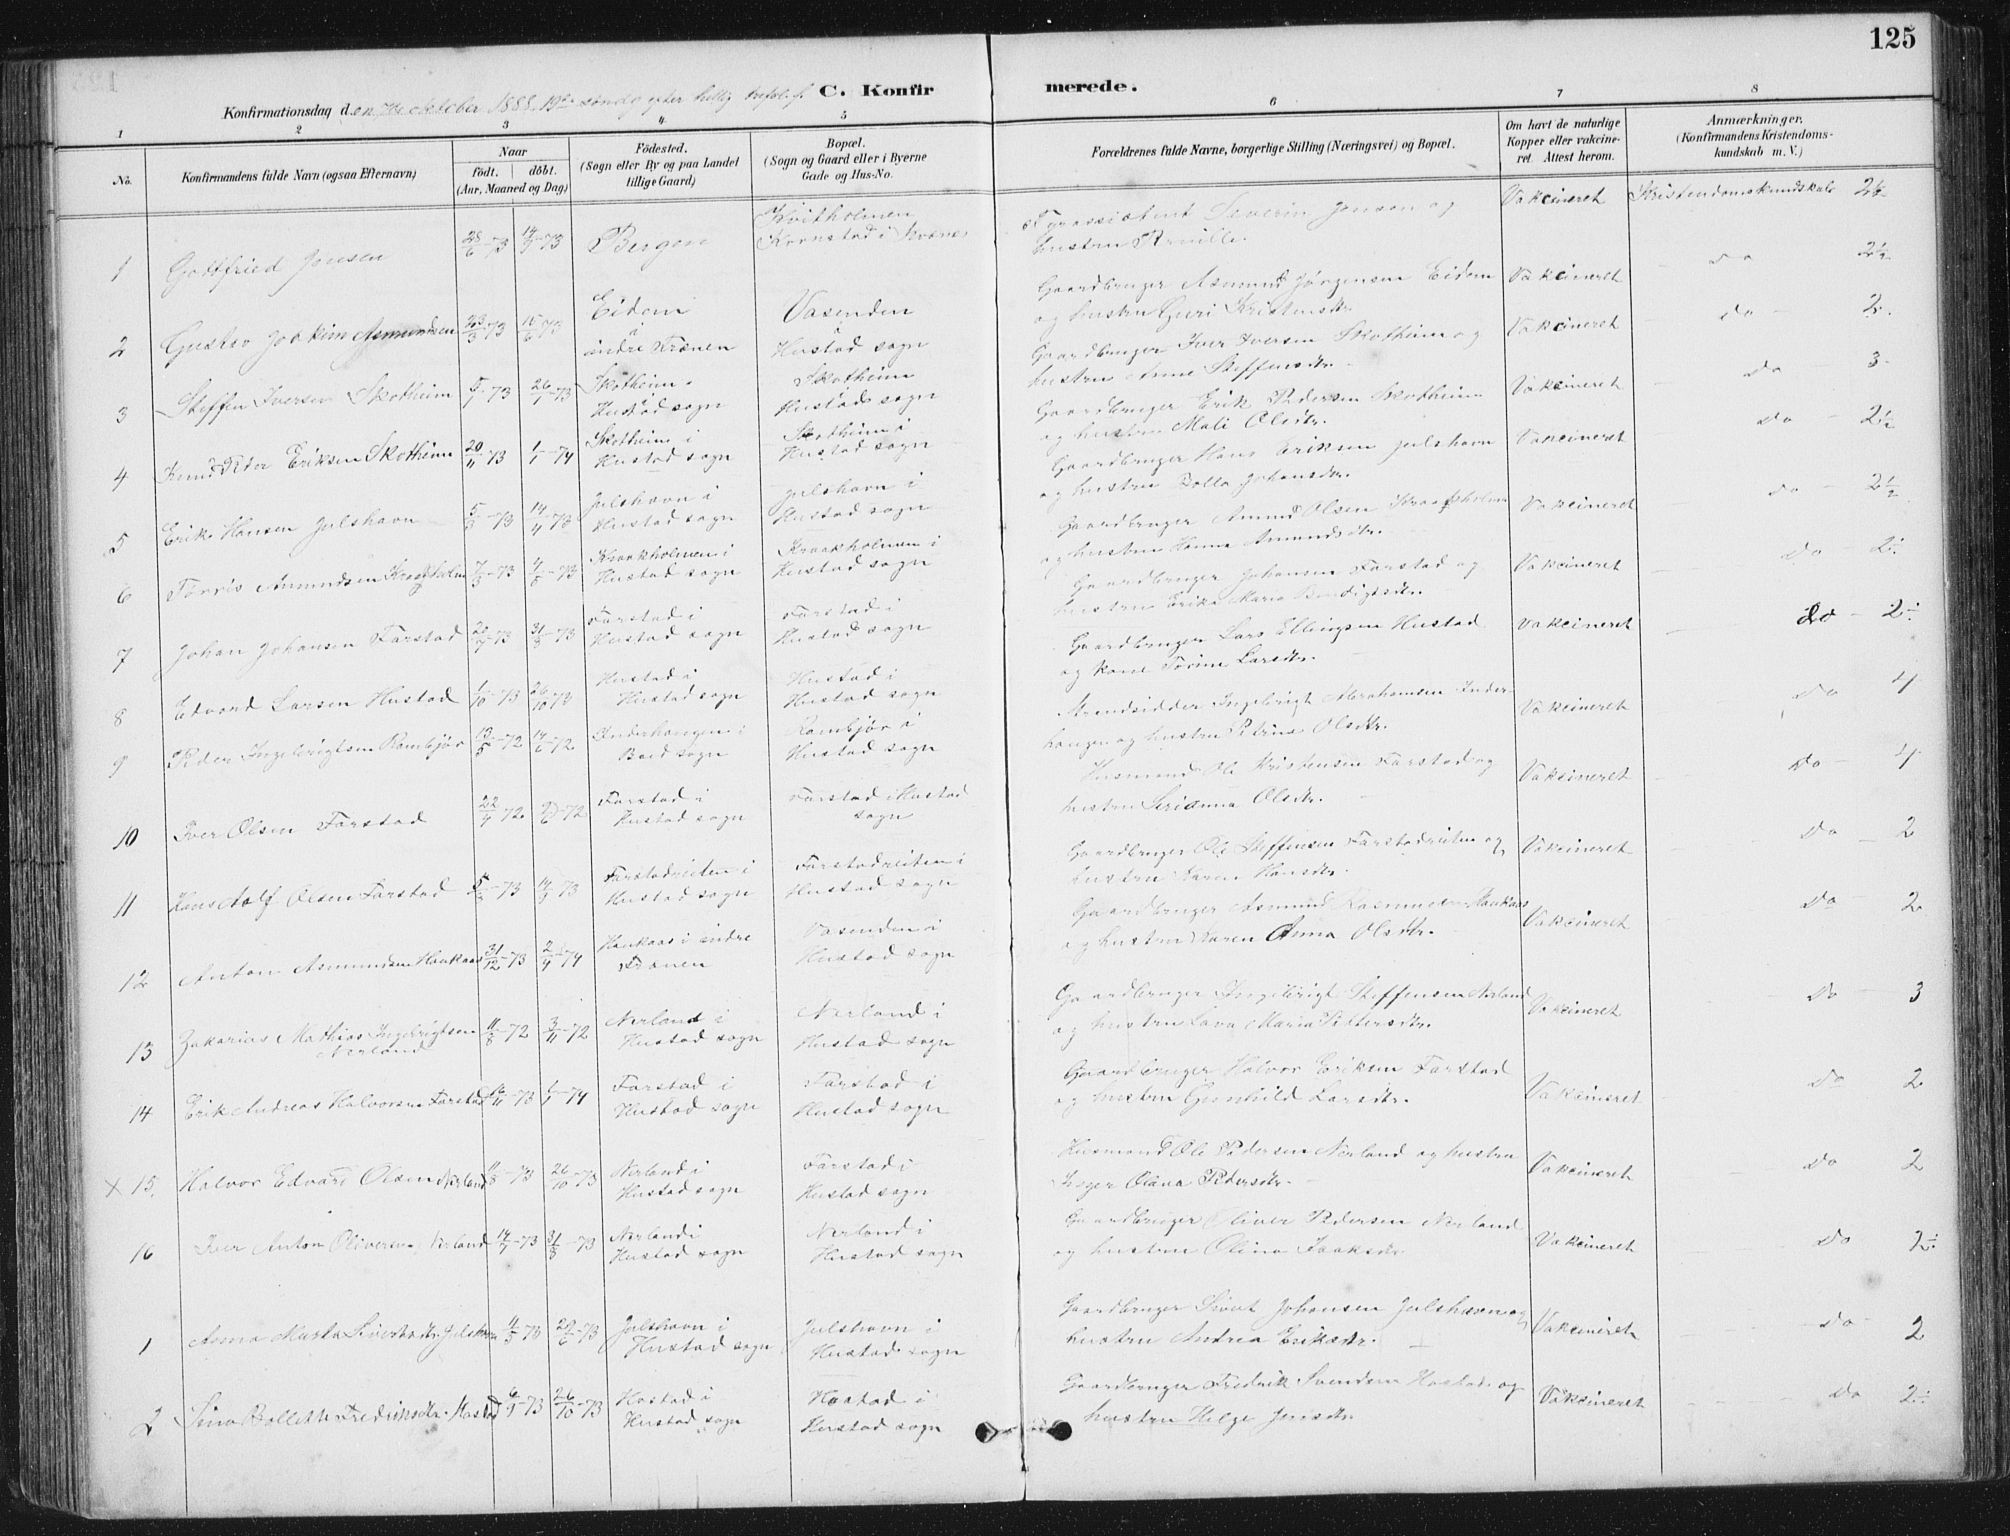 125
Konfirmationsdag den 7de October 1888 19de søndg efter hellig trefol. f.
C. Konfirmerede.
1 2 3 4 5 6 7 8
No.
Konfirmandens fulde Navn (ogsaa Efternavn)
Naar
født. døbt.
(Aar, Maaned og Dag)
Fødested.
(Sogn eller By og paa Landet
tillige Gaard)
Bopæl.
(Sogn og Gaard eller i Byerne
Gade og Hus-No.
Forældrenes fulde Navne, borgerlige Stilling (Næringsvei) og Bopæl.
Om havt de naturlige
Kopper eller vakcine-
ret Attest herom.
Anmærkninger.
(Konfirmandens Kristendoms-
kundskab m. V.)
1 Gottfried Jensen 28/6-73 14/9-73 Bergen
Kvitholmen
Kornstad i Kværnes
Fyrassistent Severin Jensen og
hustru Pernille.
Vakcineret Kristendomskundskab 2½
2 Gustav Joakim Asmundsen 23/3-73 15/6-73
Eidem i
indre Frænen
Vasenden i
Hustad sogn
Gaardbruger Asmund Jørgensen Eidem
og hustru Guri Kristensdtr.
Vakcineret do 2½
3 Steffen Iversen Skotheim 26/7-73
Skotheim i
Hustad sogn
Skotheim
Hustad sogn
Gaardbruger Iver Iversen Skotheim og
hustru Anne Steffensdtr.
Vakcineret do 2.
4 Knud Peder Eriksen Skotheim 20/11-73 1/1-74
Skotheim i
Hustad sogn
Skotheim i
Hustad sogn
Gaardbruger Erik Pedersen Skotheim
og hustru Mali Olsdtr.
Vakcineret do 3
5 Erik Hansen Julshavn 5/3-73 14/4-73
Julshavn i
Hustad sogn
Julshavn i
Hustad sogn
Gaardbruger Hans Eriksen Julshavn
og hustru Johansdtr.
Vakcineret do 2½
6 Tørris Amundsen Kraakholm 7/3-73 4/5-73
Kraakholmen i
Hustad sogn
Kraakholmen i
Hustad sogn
Gaardbruger Amund Olsen Kraakholmen
og hustru Hanna Amundsdtr.
Vakcineret do 2½
7 Johan Johansen Farstad 31/8-73
Farstad i
Hustad sogn
Farstad i
Hustad sogn
Gaardbruger Johansen Farstad og
hustru Erika Maria Bendigtsdtr.
Vakcineret Do 2
8 Edvard Larsen Hustad 1/10-73 26/10-73
Hustad i
Hustad sogn
Hustad i
Hustad sogn
Gaardbruger Lars Ellingsen Hustad
og kone Tørine Larsdtr.
Vakcineret do 2
9 Peder Ingebrigtsen Rambjør 13/5-72 14/6-72
Inderhaugen i
Bud sogn
Rambjør i
Hustad sogn
Strandsidder Ingebrigt Abrahamsen Inder-
haugen og hustru Petrine Olsdtr.
Vakcineret do 4
10 Iver Olsen Farstad 22/4-72
Farstad i
Hustad sogn
Farstad i Hustad
sogn
Husmand Ole Kristensen Farstad og
hustru Serianna Olsdtr.
Vakcineret do 4
11 Hans Adolf Olsen Farstad
Farstadreiten i
Hustad sogn
Farstadreiten i
Hustad sogn
Gaardbruger Ole Steffensen Farstadreiten og
hustru Karen Hansdtr.
Vakcineret Do 2
12 Anton Asmundsen Haukaas 31/12-73 2/4-74
Haukaas i indre
Frænen
Vasenden i
Hustad sogn
Gaardbruger Asmund Rasmussen Haukaas
og hustru Karen Anna Olsdtr.
Vakcineret Do 2
13 Zakarias Mathias Ingebrigtsen
Nerland
11/8-72 3/11-72
Nerland i
Hustad sogn
Nerland i
Hustad sogn
Gaardbruger Ingebrigt Steffensen Nerland
og hustru Lava Maria Pettersdtr.
Vakcineret Do 3
14 Erik Andreas Halvorsen Farstad 16/11-73 1/1-74
Farstad i
Hustad sogn
Farstad i
Hustad sogn
Gaardbruger Halvor Eriksen Farstad
og hustru Gunhild Larsdtr.
Vakcineret Do 2
x 15. Halvor Edvard Olsen Nerland 26/10-73
Nerland i
Hustad sogn
Farstad i
Hustad sogn
Husmand Ole Pedersen Nerland og hustru
Inger Oliana Pedersdtr.
Vakcineret Do 2
16 Iver Anton Oliversen Nerland 14/7-73 31/8-73
Nerland i
Hustad sogn
Nerland i
Hustad sogn
Gaardbruger Oliver Pedersen Nerland
og hustru Olina Isaksdtr.
Vakcineret Do 2½
1 Anna Marta Sivertsdtr. Julshavn 4/5-73 29/6-73
Julshavn i
Hustad sogn
Julshavn i
Hustad sogn
Gaardbruger Sivert Johansen Julshavn og
hustru Andrea Eriksdtr.
Vakcineret Do 2
2 Sina Bollette Fredriksdtr. Hostad 6/9-73 26/10-73
Hostad i
Hustad sogn
Hostad i
Hustad sogn
Gaardbruger Fredrik Svendsen Hostad og
hustru Helge Jensdtr.
Vakcineret Do 2